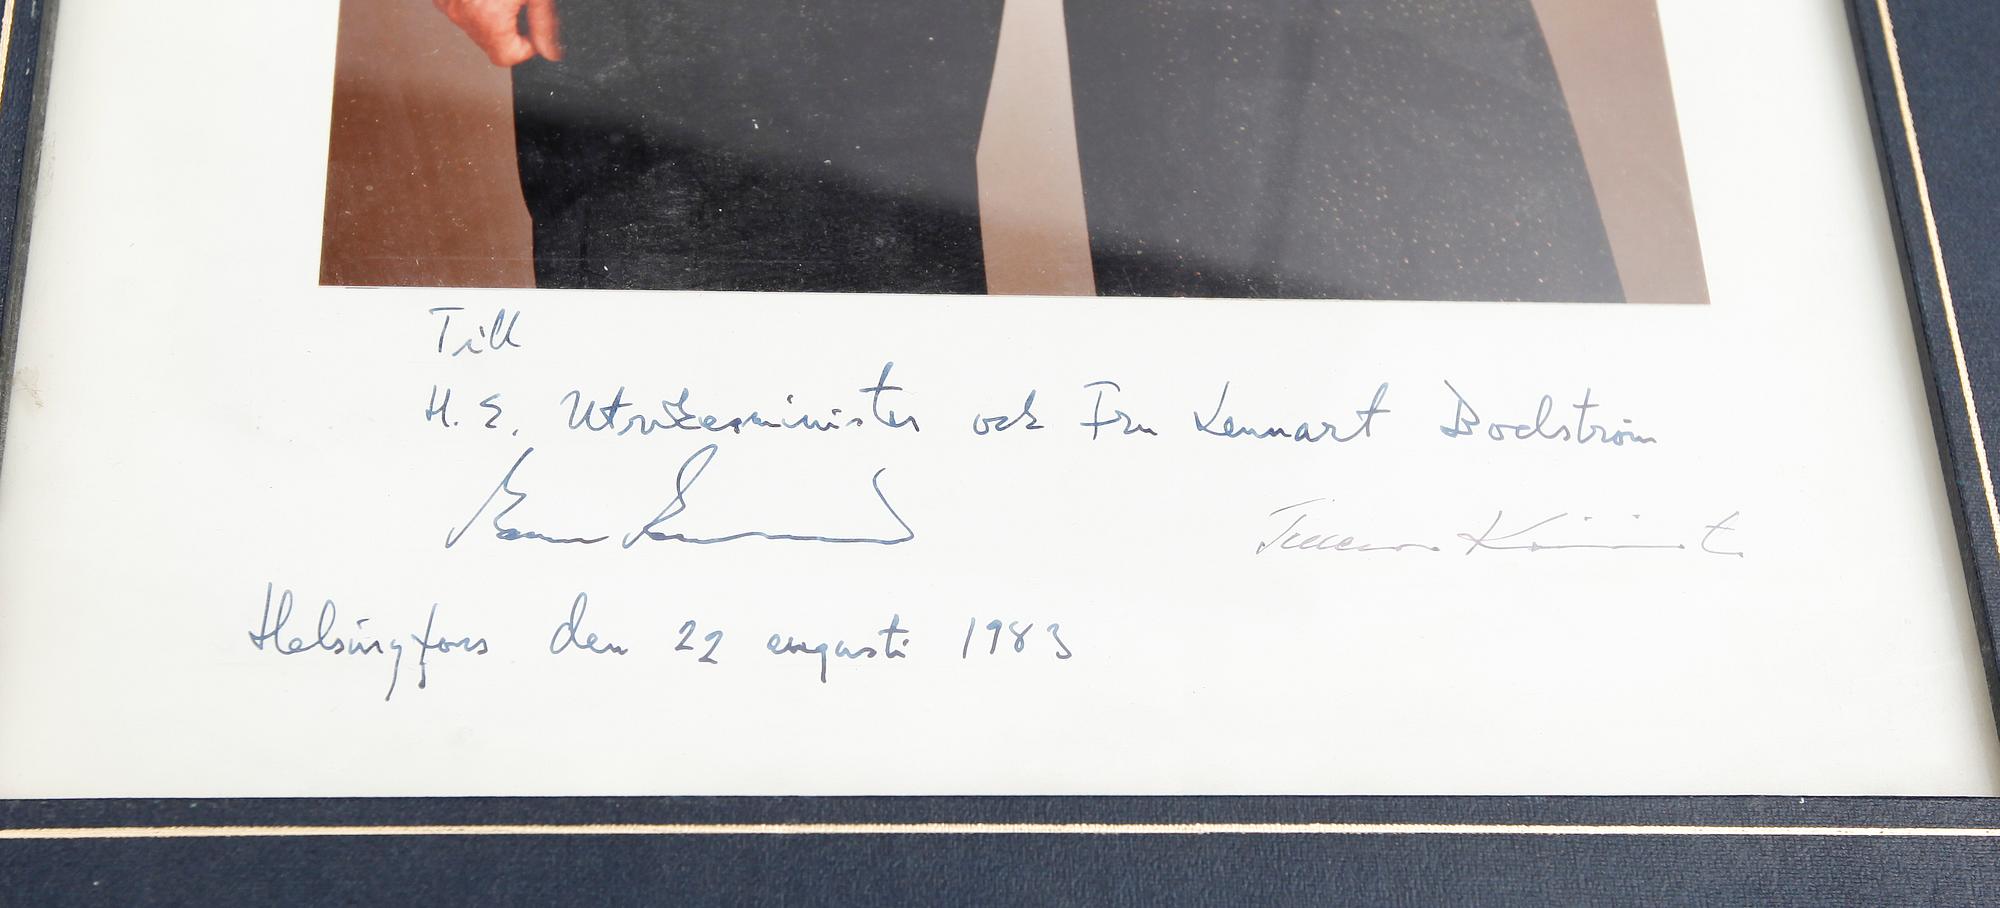 Till
H. E. Utrikesminister och Fru Lennart Bodström
Helsingfors den 22 augusti 1983